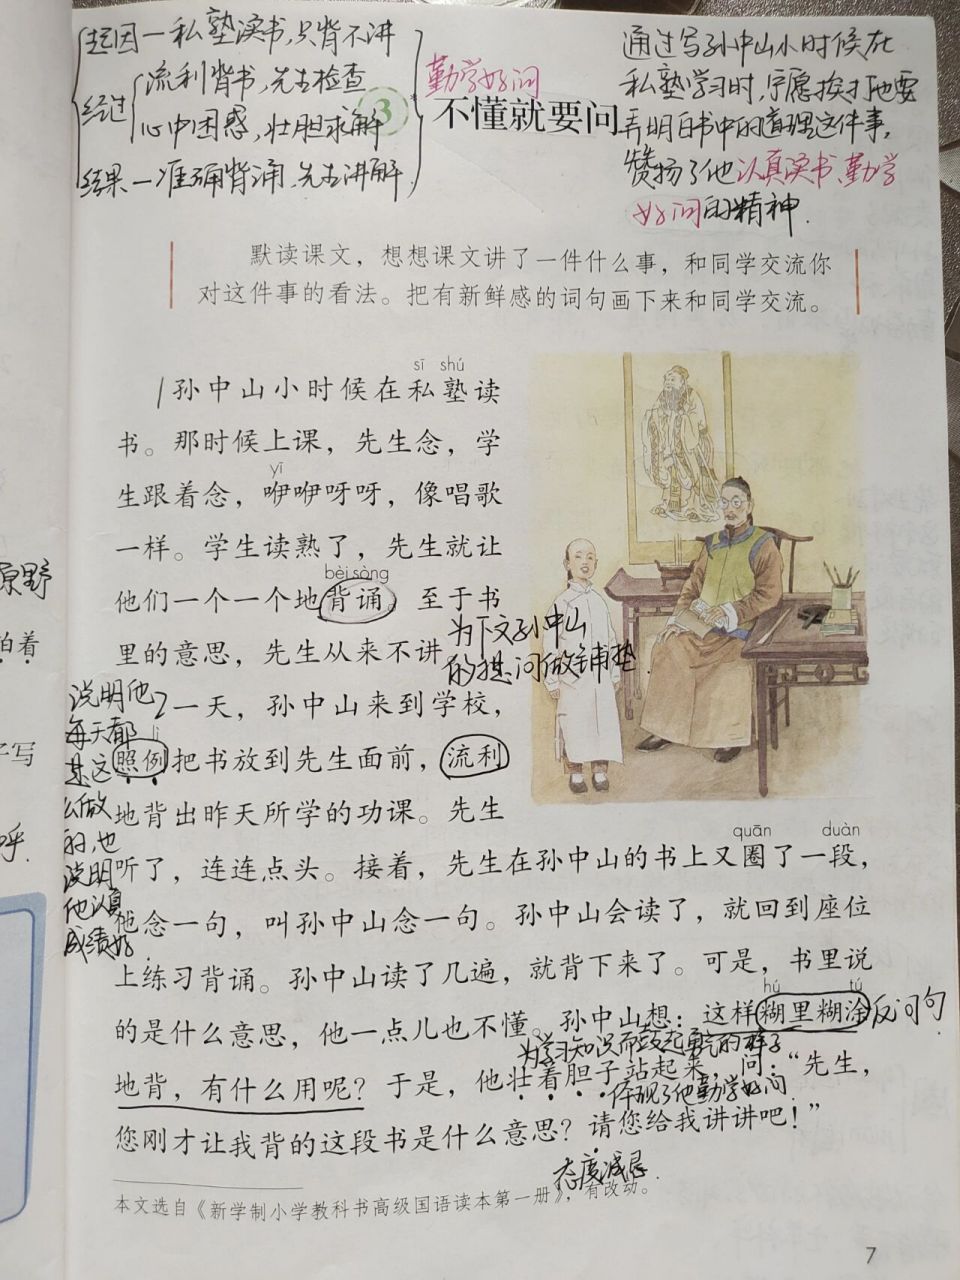 起因一私塾读书,只背不讲
经过
流利背书,先生检查
心中困惑,壮胆求解
结果一准确背诵,先生讲解
勤学好问
3 不懂就要问
通过写孙中山小时候在
私塾学习时,宁愿挨打也要
弄明白书中的道理这件事,
赞扬了他认真读书、勤学
好问的精神.
默读课文，想想课文讲了一件什么事，和同学交流你
对这件事的看法。把有新鲜感的词句画下来和同学交流。
sī shú
1孙中山小时候在私塾读
书。那时候上课，先生念，学
yī
生跟着念，咿咿呀呀，像唱歌
一样。学生读熟了，先生就让
bèi sòng
他们一个一个地背诵。至于书
里的意思，先生从来不讲
为下文孙中山
的提问做铺垫.
2一天，孙中山来到学校，
lì
照例把书放到先生面前，流利
地背出昨天所学的功课。先生
quān duàn
听了，连连点头。接着，先生在孙中山的书上又圈了一段，
他念一句，叫孙中山念一句。孙中山会读了，就回到座位
上练习背诵。孙中山读了几遍，就背下来了。可是，书里说
hú tú
的是什么意思，他一点儿也不懂。孙中山想：这样糊里糊涂
反问句
为学习知识而鼓起勇气的样子
地背，有什么用呢？于是，他壮着胆子站起来，问：“先生，
体现了他勤学好问
您刚才让我背的这段书是什么意思？请您给我讲讲吧！”
态度诚恳
说明他
每天都
是这
么做
的,也
说明
他认真
成绩好.
本文选自《新学制小学教科书高级国语读本第一册》，有改动。
7
原野
着
写
呼.